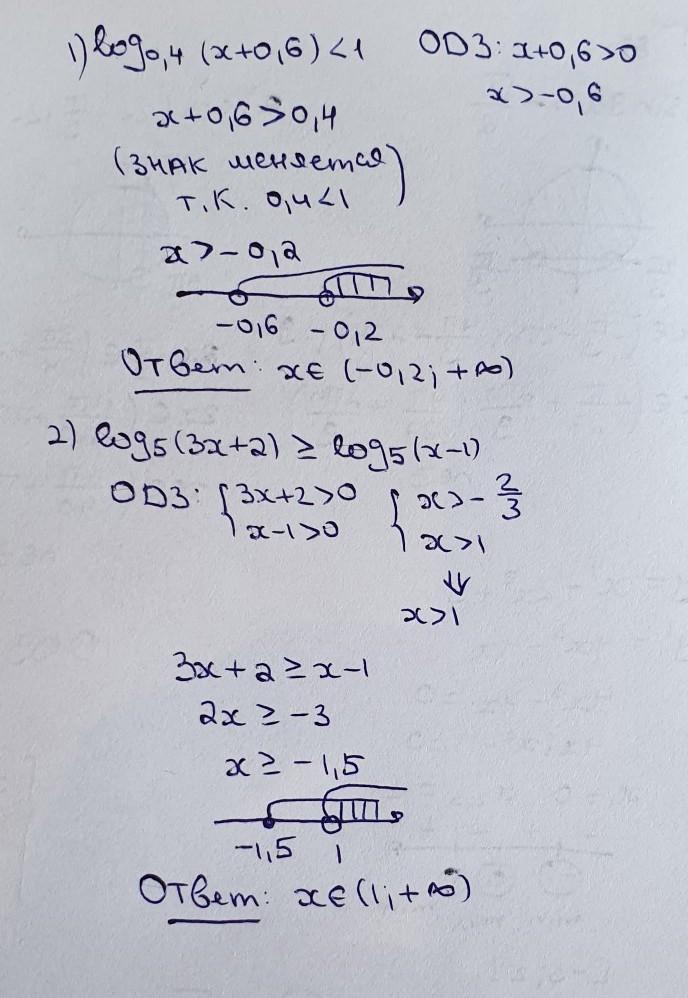 1) log₀,₄ (x+0,6) < 1 ОДЗ: x+0,6>0
x>-0,6
x+0,6>0,4
(знак меняется
т.к. 0,4<1)
x>-0,2
-0,6 -0,2
Ответ: x∈ (-0,2; +∞)
2) log₅(3x+2) ≥ log₅(x-1)
ОДЗ: { 3x+2>0 { x>-2/3
x-1>0 x>1
⇓
x>1
3x+2 ≥ x-1
2x ≥ -3
x ≥ -1,5
-1,5 1
Ответ: x∈(1;+∞)